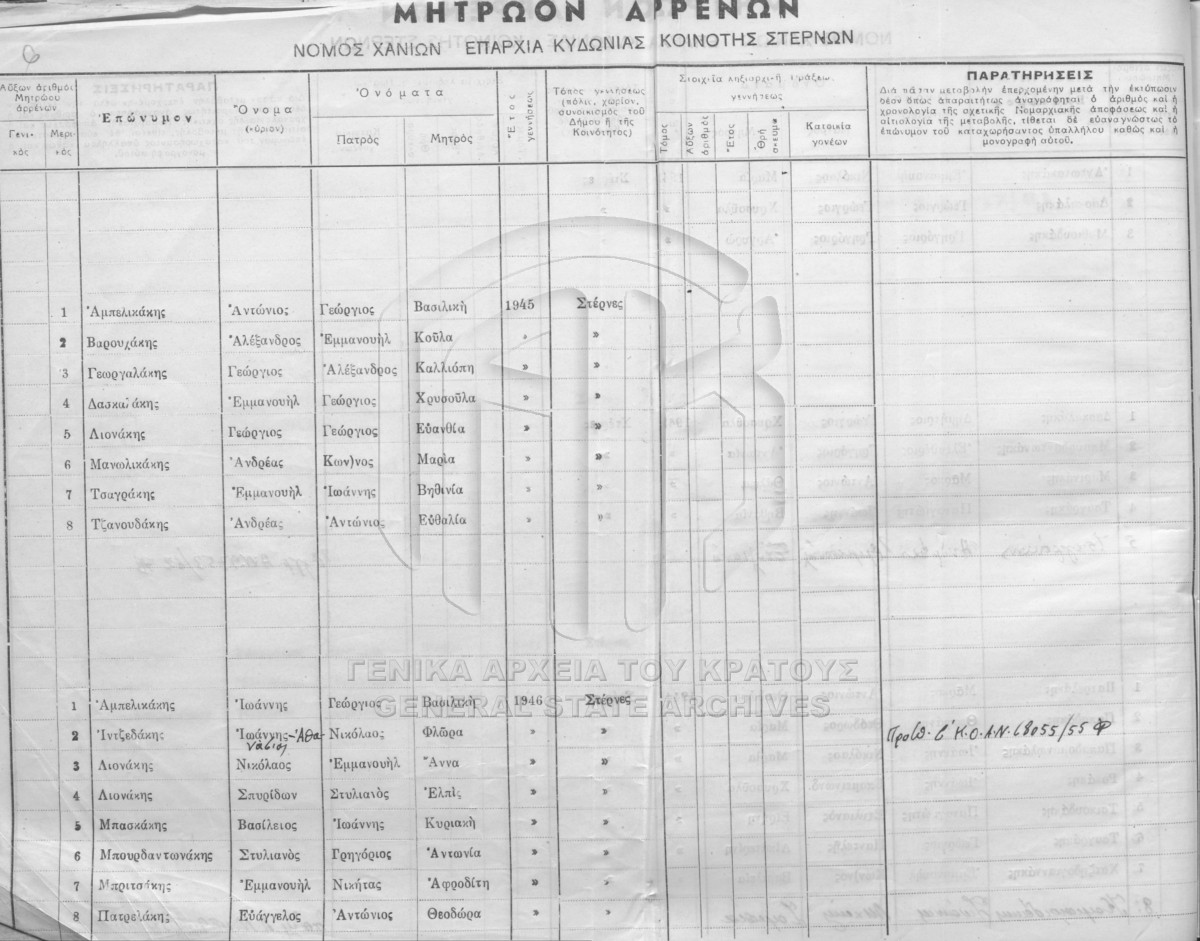 ΜΗΤΡΩΟΝ ΑΡΡΕΝΩΝ
ΝΟΜΟΣ ΧΑΝΙΩΝ ΕΠΑΡΧΙΑ ΚΥΔΩΝΙΑΣ ΚΟΙΝΟΤΗΣ ΣΤΕΡΝΩΝ
Αὔξων ἀριθμὸς Μητρώου ἀρρένων
Γενικὸς
Μερικὸς
Ἐπώνυμον
Ὄνομα (κύριον)
Ὀνόματα
Πατρὸς
Μητρὸς
Ἔτος γεννήσεως
Τόπος γεννήσεως (πόλις, χωρίον, συνοικισμὸς τοῦ Δήμου ἢ τῆς Κοινότητος)
Στοιχεῖα ληξιαρχικῆ πράξεω. γεννήσεως
Τόμος
Αὔξων ἀριθμὸς
Ἔτος
Κατοικία γονέων
ΠΑΡΑΤΗΡΗΣΕΙΣ
Διὰ πᾶσαν μεταβολὴν ἐπερχομένην μετὰ τὴν ἐκτύπωσιν
δέον ὅπως ἀπαραιτήτως ἀναγράφηται ὁ ἀριθμὸς καὶ ἡ
χρονολογία τῆς σχετικῆς Νομαρχιακῆς ἀποφάσεως καὶ ἡ
αἰτιολογία τῆς μεταβολῆς, τίθεται δὲ εὐαναγνώστως τὸ
ἐπώνυμον τοῦ καταχωρήσαντος ὑπαλλήλου καθὼς καὶ ἡ
μονογραφή αὐτοῦ.
1 Ἀμπελικάκης Ἀντώνιος Γεώργιος Βασιλικὴ 1945 Στέρνες
2 Βαρουχάκης Ἀλέξανδρος Ἐμμανουὴλ Κοῦλα » »
3 Γεωργαλάκης Γεώργιος Ἀλέξανδρος Καλλιόπη » »
4 Δασκαλάκης Ἐμμανουὴλ Γεώργιος Χρυσοῦλα » »
5 Λιονάκης Γεώργιος Γεώργιος Εὐανθία » »
6 Μανωλικάκης Ἀνδρέας Κων)νος Μαρία » »
7 Τσαγράκης Ἐμμανουὴλ Ἰωάννης Βηθινία » »
8 Τζανουδάκης Ἀνδρέας Ἀντώνιος Εὐθαλία » »
ΓΕΝΙΚΑ ΑΡΧΕΙΑ ΤΟΥ ΚΡΑΤΟΥΣ
GENERAL STATE ARCHIVES
1 Ἀμπελικάκης Ἰωάννης Γεώργιος Βασιλικὴ 1946 Στέρνες
2 Ἰντζεδάκης Ἰωάννης-Ἀθανάσιος Νικόλαος Φλῶρα » »
3 Λιονάκης Νικόλαος Ἐμμανουὴλ Ἄννα » »
4 Λιονάκης Σπυρίδων Στυλιανὸς Ἐλπὶς » »
5 Μπασκάκης Βασίλειος Ἰωάννης Κυριακὴ » »
6 Μπουρδαντωνάκης Στυλιανὸς Γρηγόριος Ἀντωνία » »
7 Μπριτσάκης Ἐμμανουὴλ Νικήτας Ἀφροδίτη » »
8 Πατρελάκης Εὐάγγελος Ἀντώνιος Θεοδώρα » »